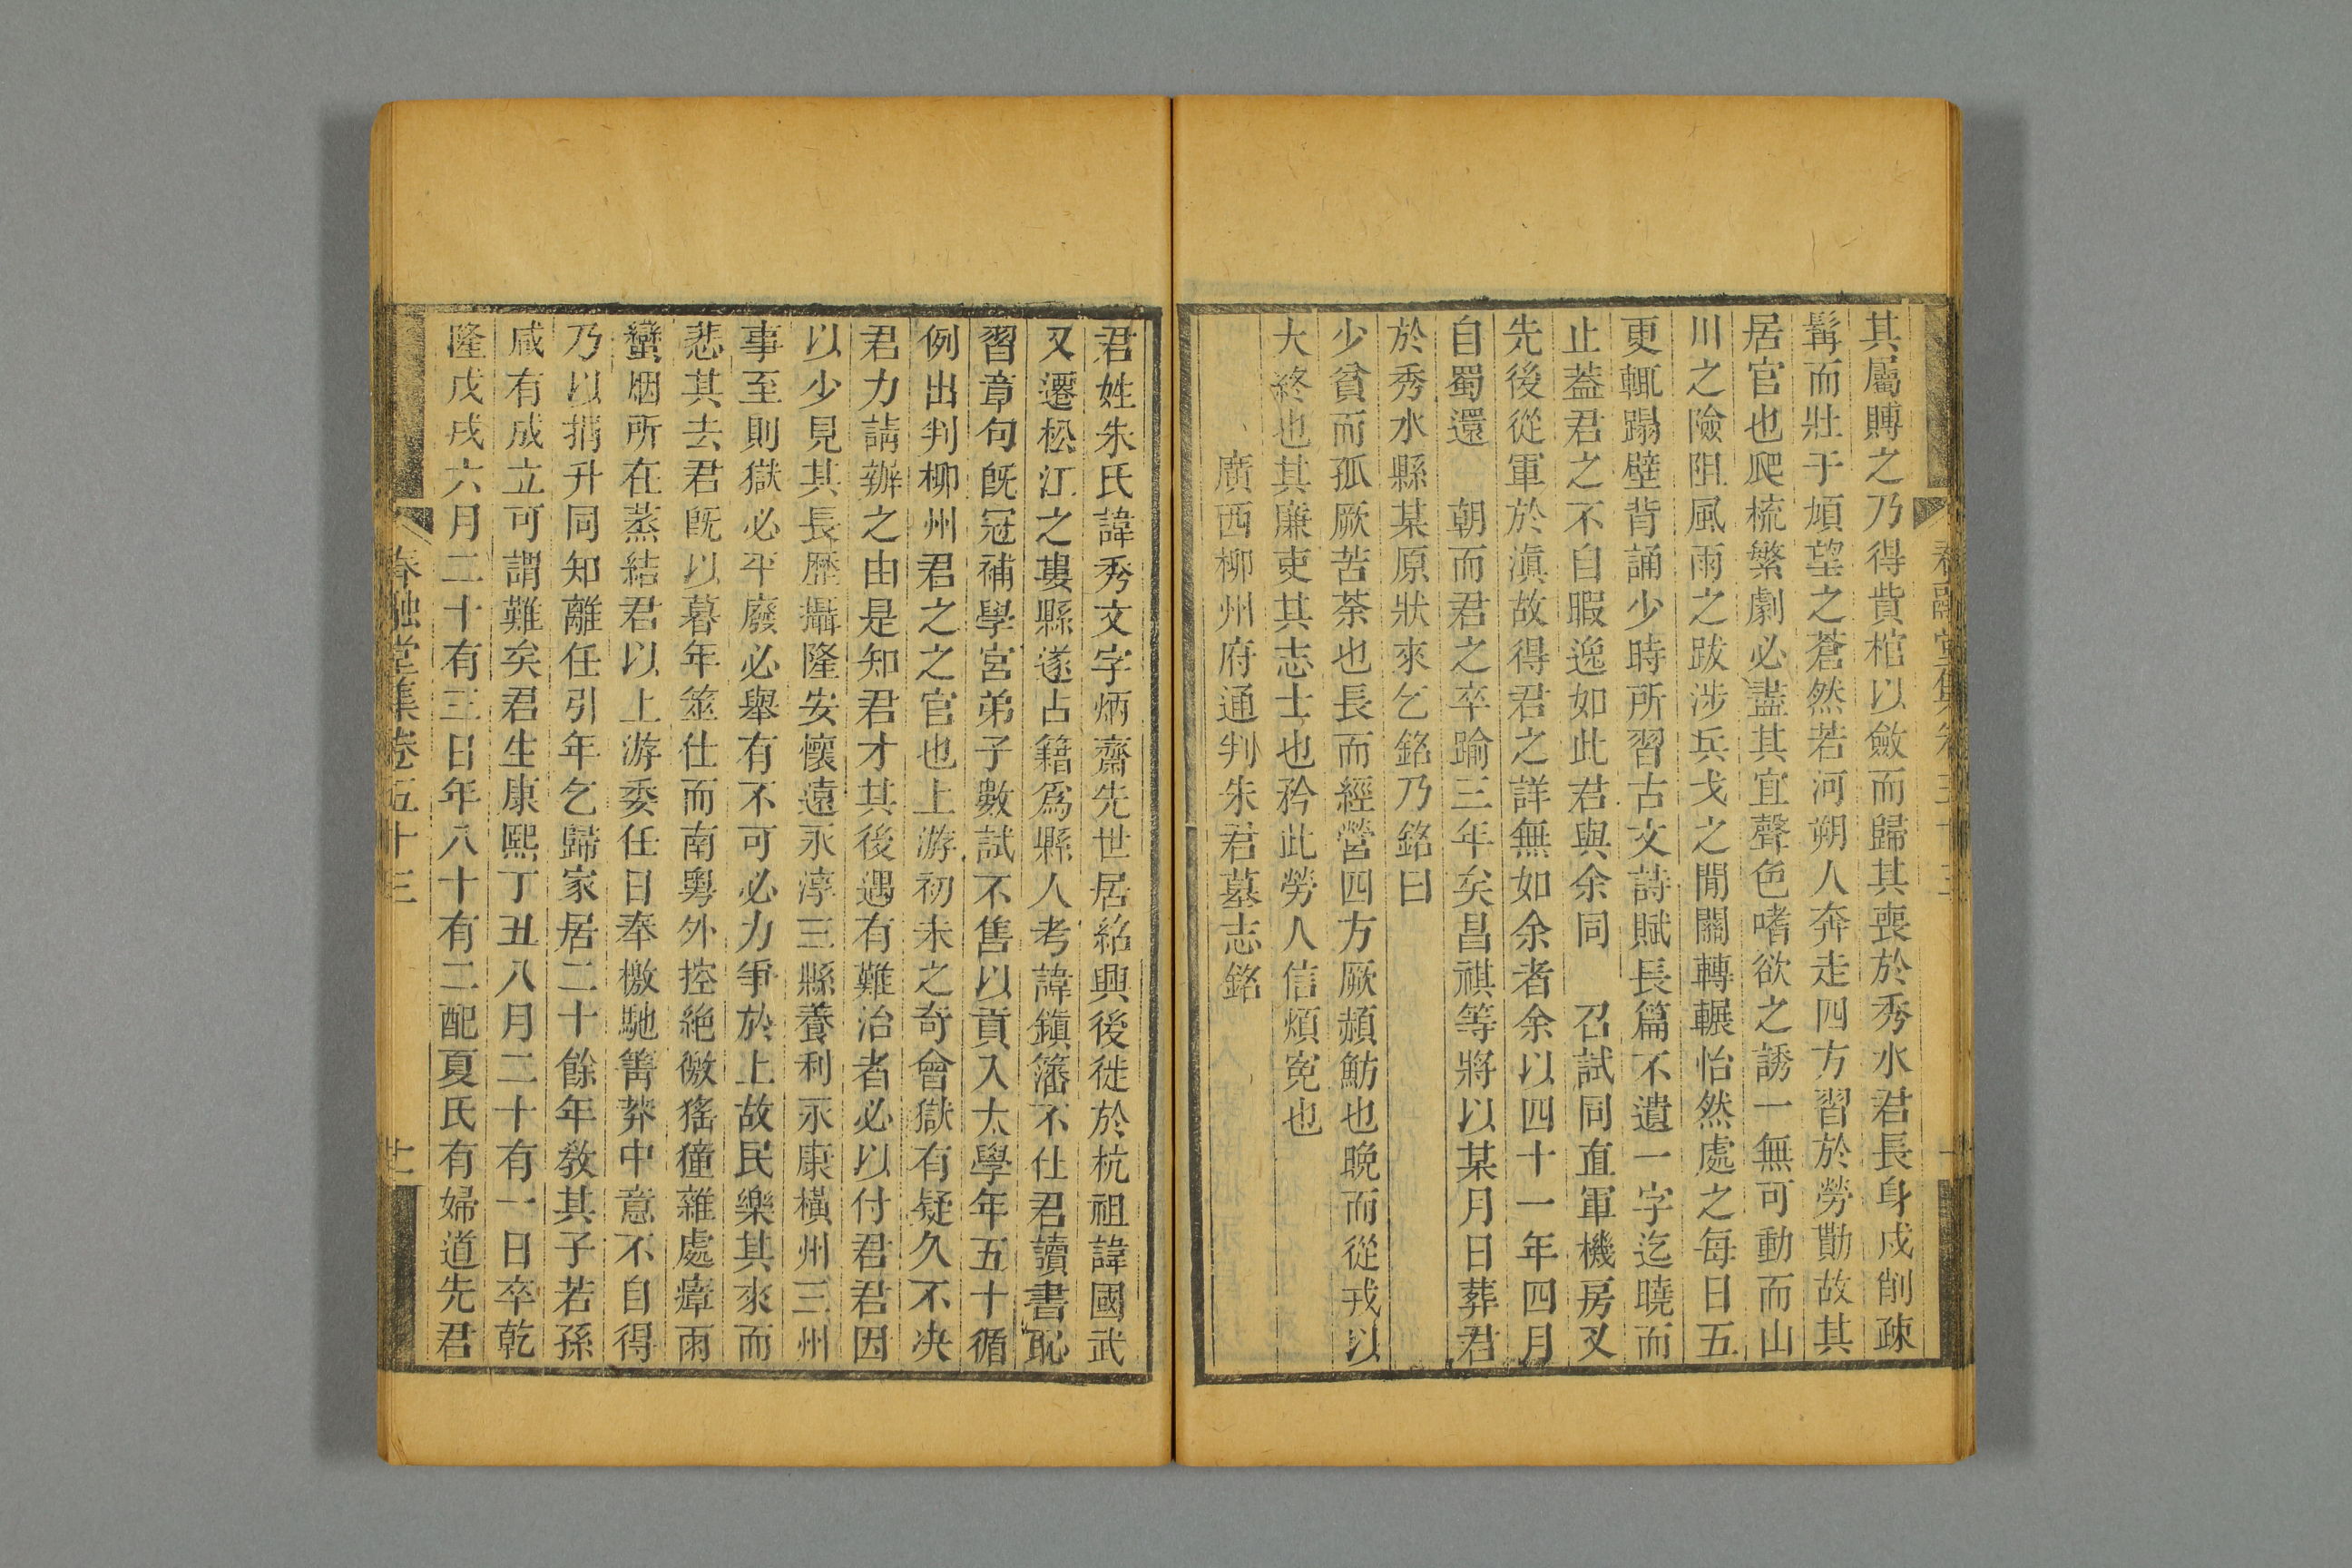 其屬賻之乃得貲棺以斂而歸其喪於秀水君長身戍削疎
髯而壯于頄望之蒼然若河朔人奔走四方習於勞勩故其
居官也爬梳繁劇必盡其宜聲色嗜欲之誘一無可動而山
川之險阻風雨之跋涉兵戈之閒關轉輾怡然處之每日五
更輒蹋壁背誦少時所習古文詩賦長篇不遺一字迄曉而
止葢君之不自暇逸如此君與余同　召試同直軍機房又
先後從軍於滇故得君之詳無如余者余以四十一年四月
自蜀還　朝而君之卒踰三年矣昌祺等將以某月日葬君
於秀水縣某原狀來乞銘乃銘曰
少貧而孤厥苦荼也長而經營四方厥頳魴也晚而從戎以
大終也其廉吏其志士也矜此勞人信煩寃也
廣西柳州府通判朱君墓志銘
君姓朱氏諱秀文字炳齋先世居紹興後徙於杭祖諱國武
又遷松江之婁縣遂占籍爲縣人考諱鎭藩不仕君讀書恥
習章句旣冠補學宮弟子數試不售以貢入太學年五十循
例出判柳州君之之官也上游初未之奇會獄有疑久不决
君力請辦之由是知君才其後遇有難治者必以付君君因
以少見其長歷攝隆安懷遠永淳三縣養利永康橫州三州
事至則獄必平廢必舉有不可必力爭於上故民樂其來而
悲其去君旣以暮年筮仕而南粤外控絶徼猺獞雜處瘴雨
蠻烟所在蒸結君以上游委任日奉檄馳箐莽中意不自得
乃以捐升同知離任引年乞歸家居二十餘年敎其子若孫
咸有成立可謂難矣君生康熙丁丑八月二十有一日卒乾
隆戊戌六月二十有三日年八十有二配夏氏有婦道先君
春融堂集卷五十三